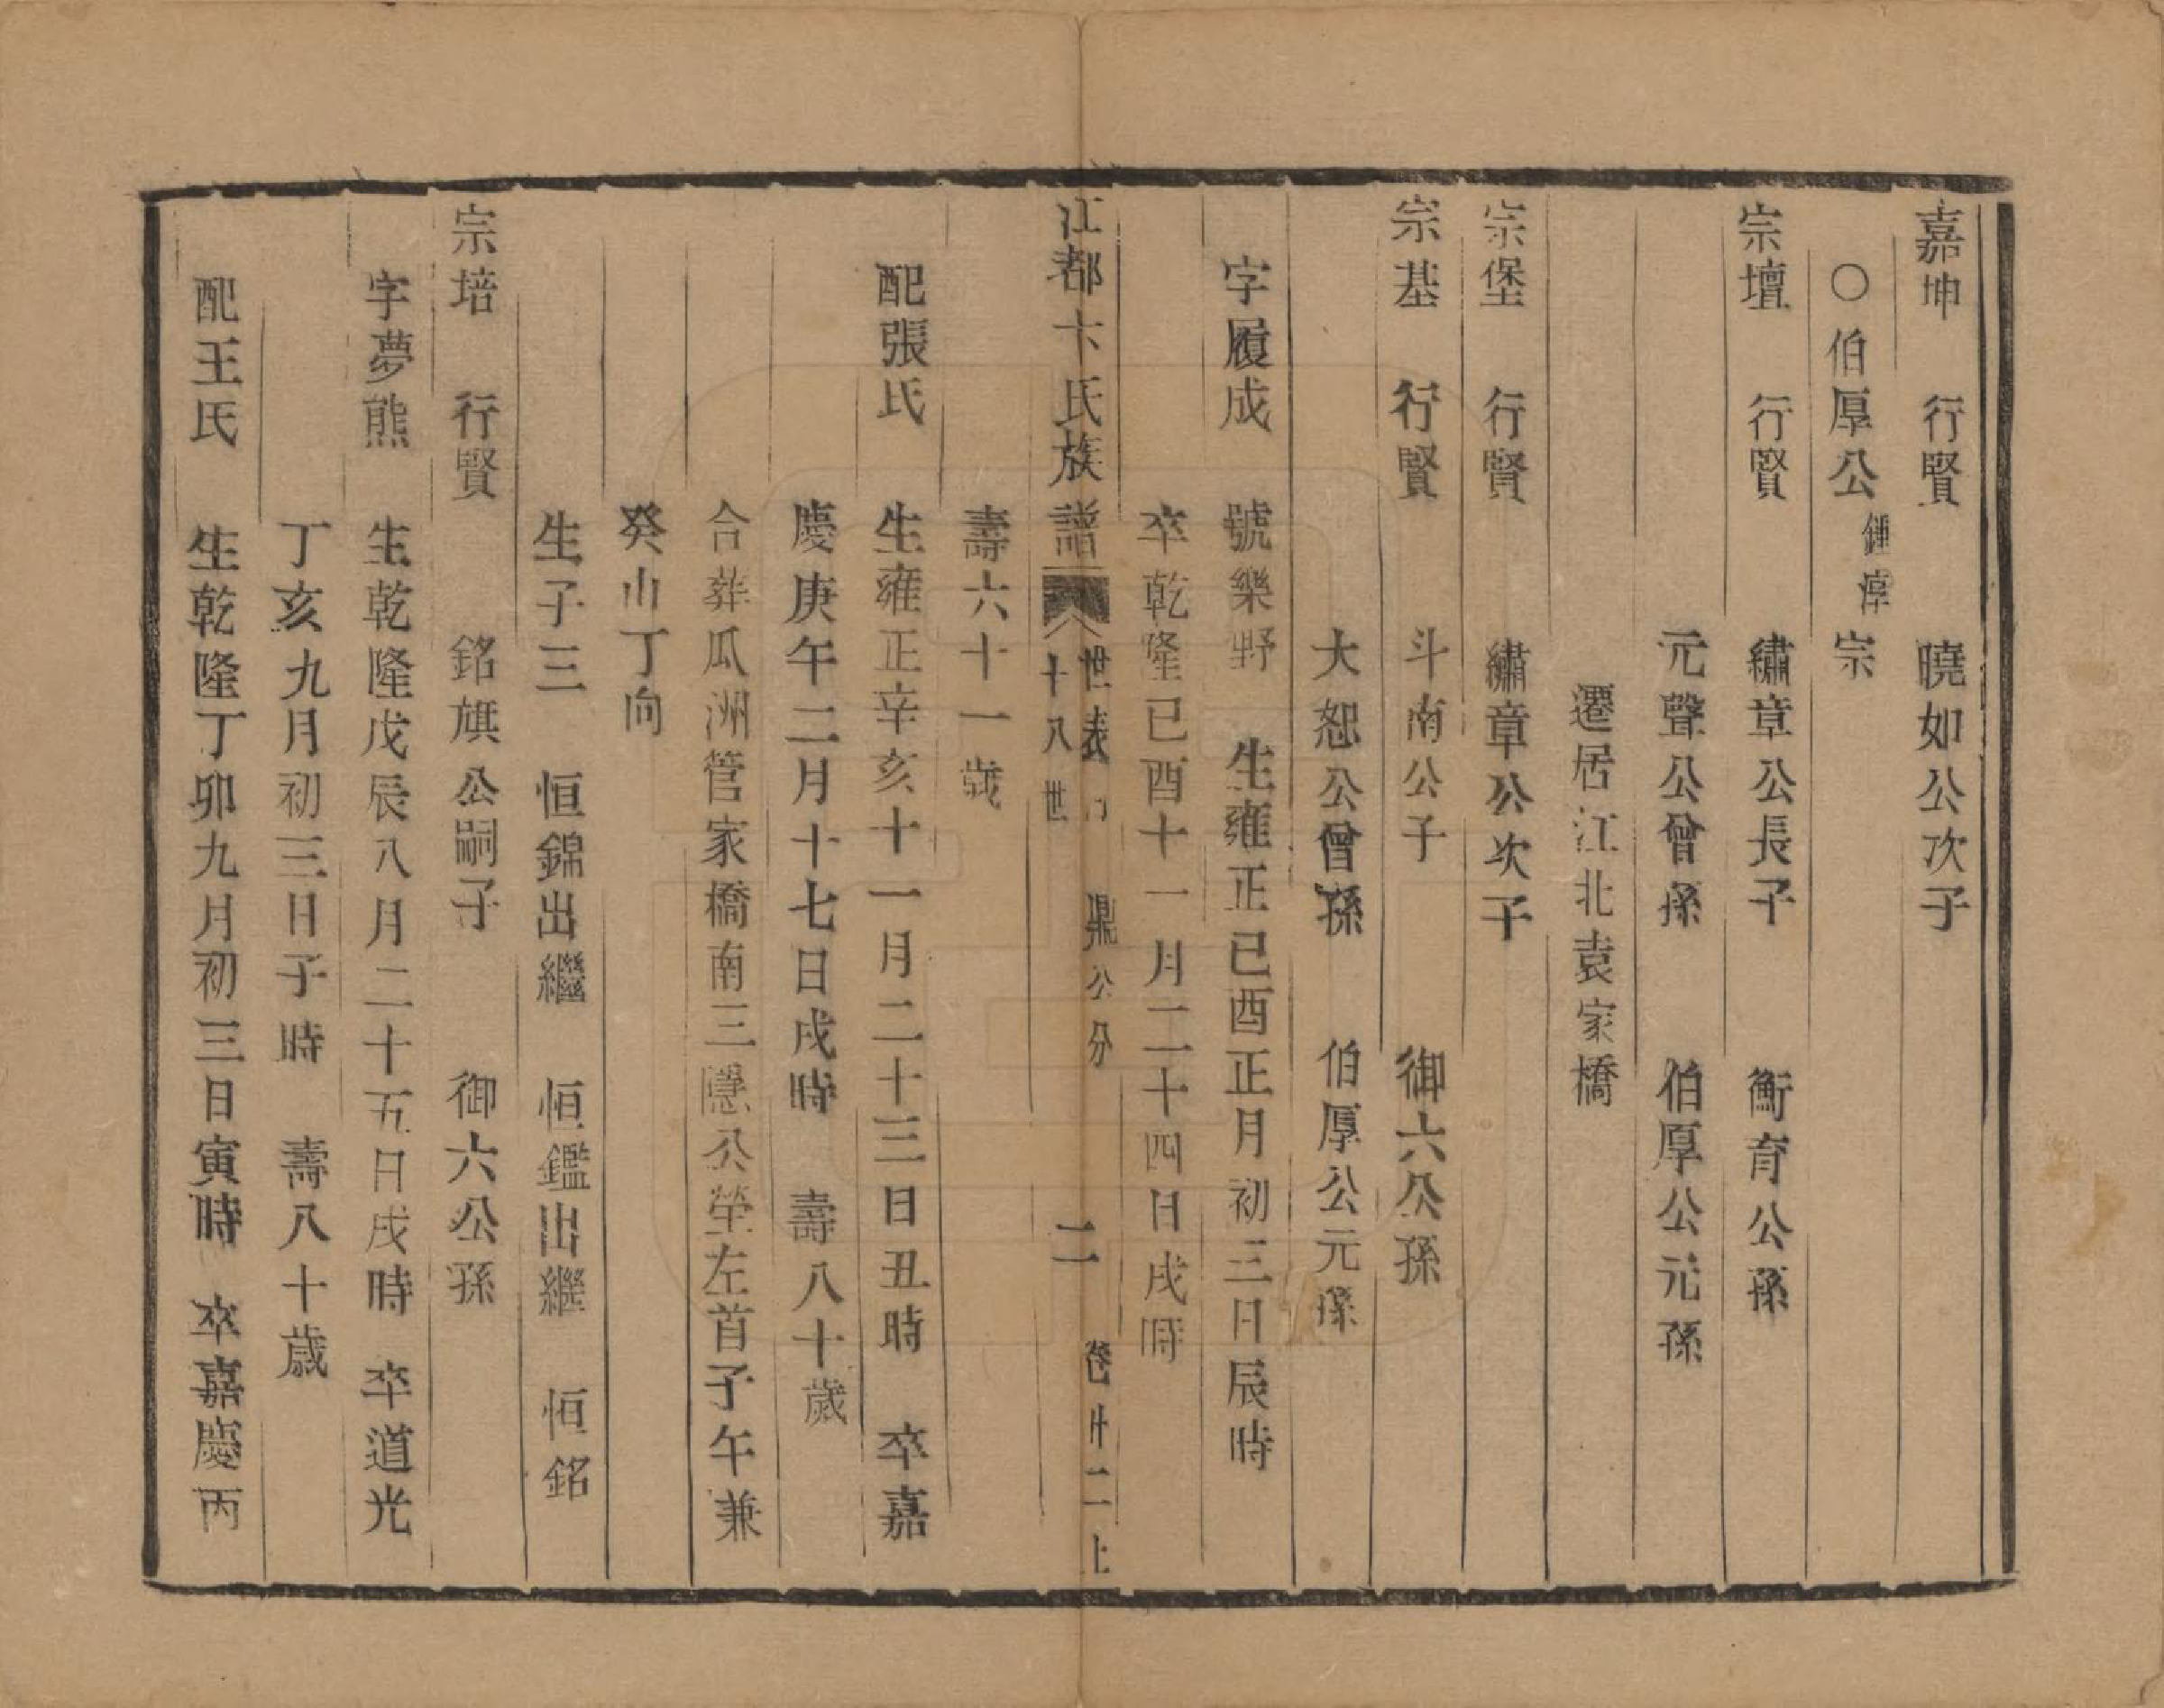 嘉坤　行賢　曉如公次子
〇伯厚公鍾淳宗
宗壇　行賢　繡章公長子　衡育公孫
元聲公曾孫　伯厚公元孫
遷居江北袁家橋
宗堡　行賢　繡章公次子
宗基　行賢　斗南公子　御六公孫
大恕公曾孫　伯厚公元孫
字履成　號樂野　生雍正已酉正月初三日辰時
卒乾隆已酉十一月二十四日戌時
江都卞氏族譜　世表　十八世　鼎公分　二　卷廿二上
壽六十一歲
配張氏　生雍正辛亥十一月二十三日丑時　卒嘉
慶庚午二月十七日戌時　壽八十歲
合葬瓜洲管家橋南三隱公塋左首子午兼
癸山丁向
生子三　恒錦出繼　恒鑑出繼　恒銘
宗培　行賢　銘旗公嗣子　御六公孫
字夢熊　生乾隆戊辰八月二十五日戌時　卒道光
丁亥九月初三日子時　壽八十歲
配王氏　生乾隆丁卯九月初三日寅時　卒嘉慶丙